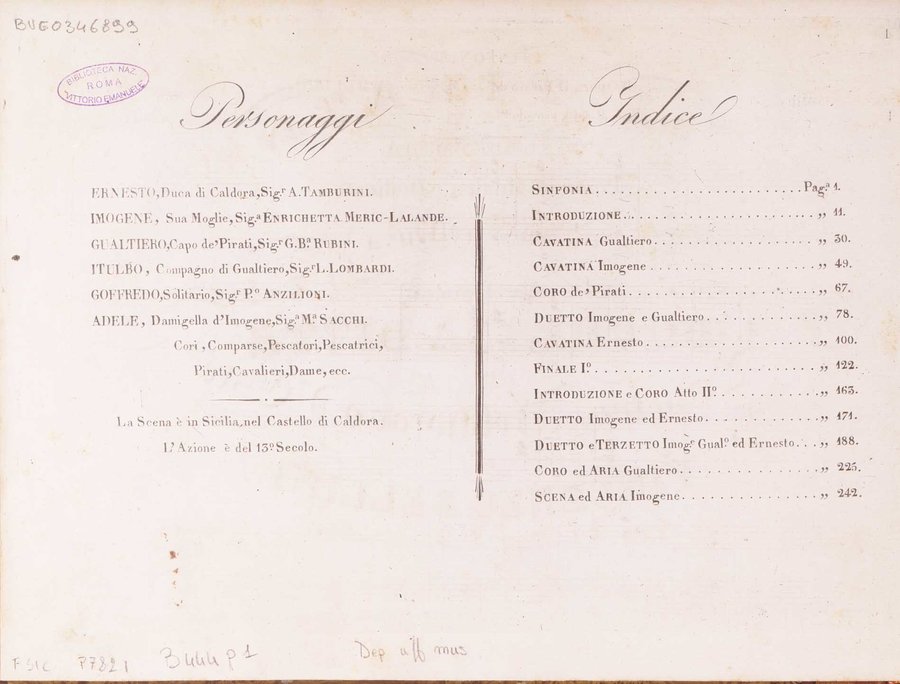 BVE0346899
1
BIBLIOTECA NAZ.
ROMA
"VITTORIO EMANUELE"
Personaggi
ERNESTO, Duca di Caldora, Sig.r A. TAMBURINI.
IMOGENE, Sua Moglie, Sig.a ENRICHETTA MERIC-LALANDE.
GUALTIERO, Capo de' Pirati, Sig.r G.Ba. RUBINI.
ITULBO, Compagno di Gualtiero, Sig.r L. LOMBARDI.
GOFFREDO, Solitario, Sig.r P.o ANZILIONI.
ADELE, Damigella d'Imogene, Sig.a M.a SACCHI.
Cori, Comparse, Pescatori, Pescatrici,
Pirati, Cavalieri, Dame, ecc.
La Scena è in Sicilia, nel Castello di Caldora.
L'Azione è del 13º Secolo.
Indice
SINFONIA . . . . . . . . . . . . . . . . . . . . . . . . . Pag.a 1.
INTRODUZIONE . . . . . . . . . . . . . . . . . . . . . . . „ 11.
CAVATINA Gualtiero . . . . . . . . . . . . . . . . . . . . „ 30.
CAVATINA Imogene . . . . . . . . . . . . . . . . . . . . . „ 49.
CORO de' Pirati . . . . . . . . . . . . . . . . . . . . . . „ 67.
DUETTO Imogene e Gualtiero . . . . . . . . . . . . . . „ 78.
CAVATINA Ernesto . . . . . . . . . . . . . . . . . . . . . „ 100.
FINALE Iº . . . . . . . . . . . . . . . . . . . . . . . . . . „ 122.
INTRODUZIONE e CORO Atto IIº . . . . . . . . . . . . . „ 163.
DUETTO Imogene ed Ernesto . . . . . . . . . . . . . . „ 171.
DUETTO e TERZETTO Imog.e Gual.o ed Ernesto . . . „ 188.
CORO ed ARIA Gualtiero . . . . . . . . . . . . . . . . . „ 225.
SCENA ed ARIA Imogene . . . . . . . . . . . . . . . . . „ 242.
F SIC P7821 3444 p 1 Dep aff mus